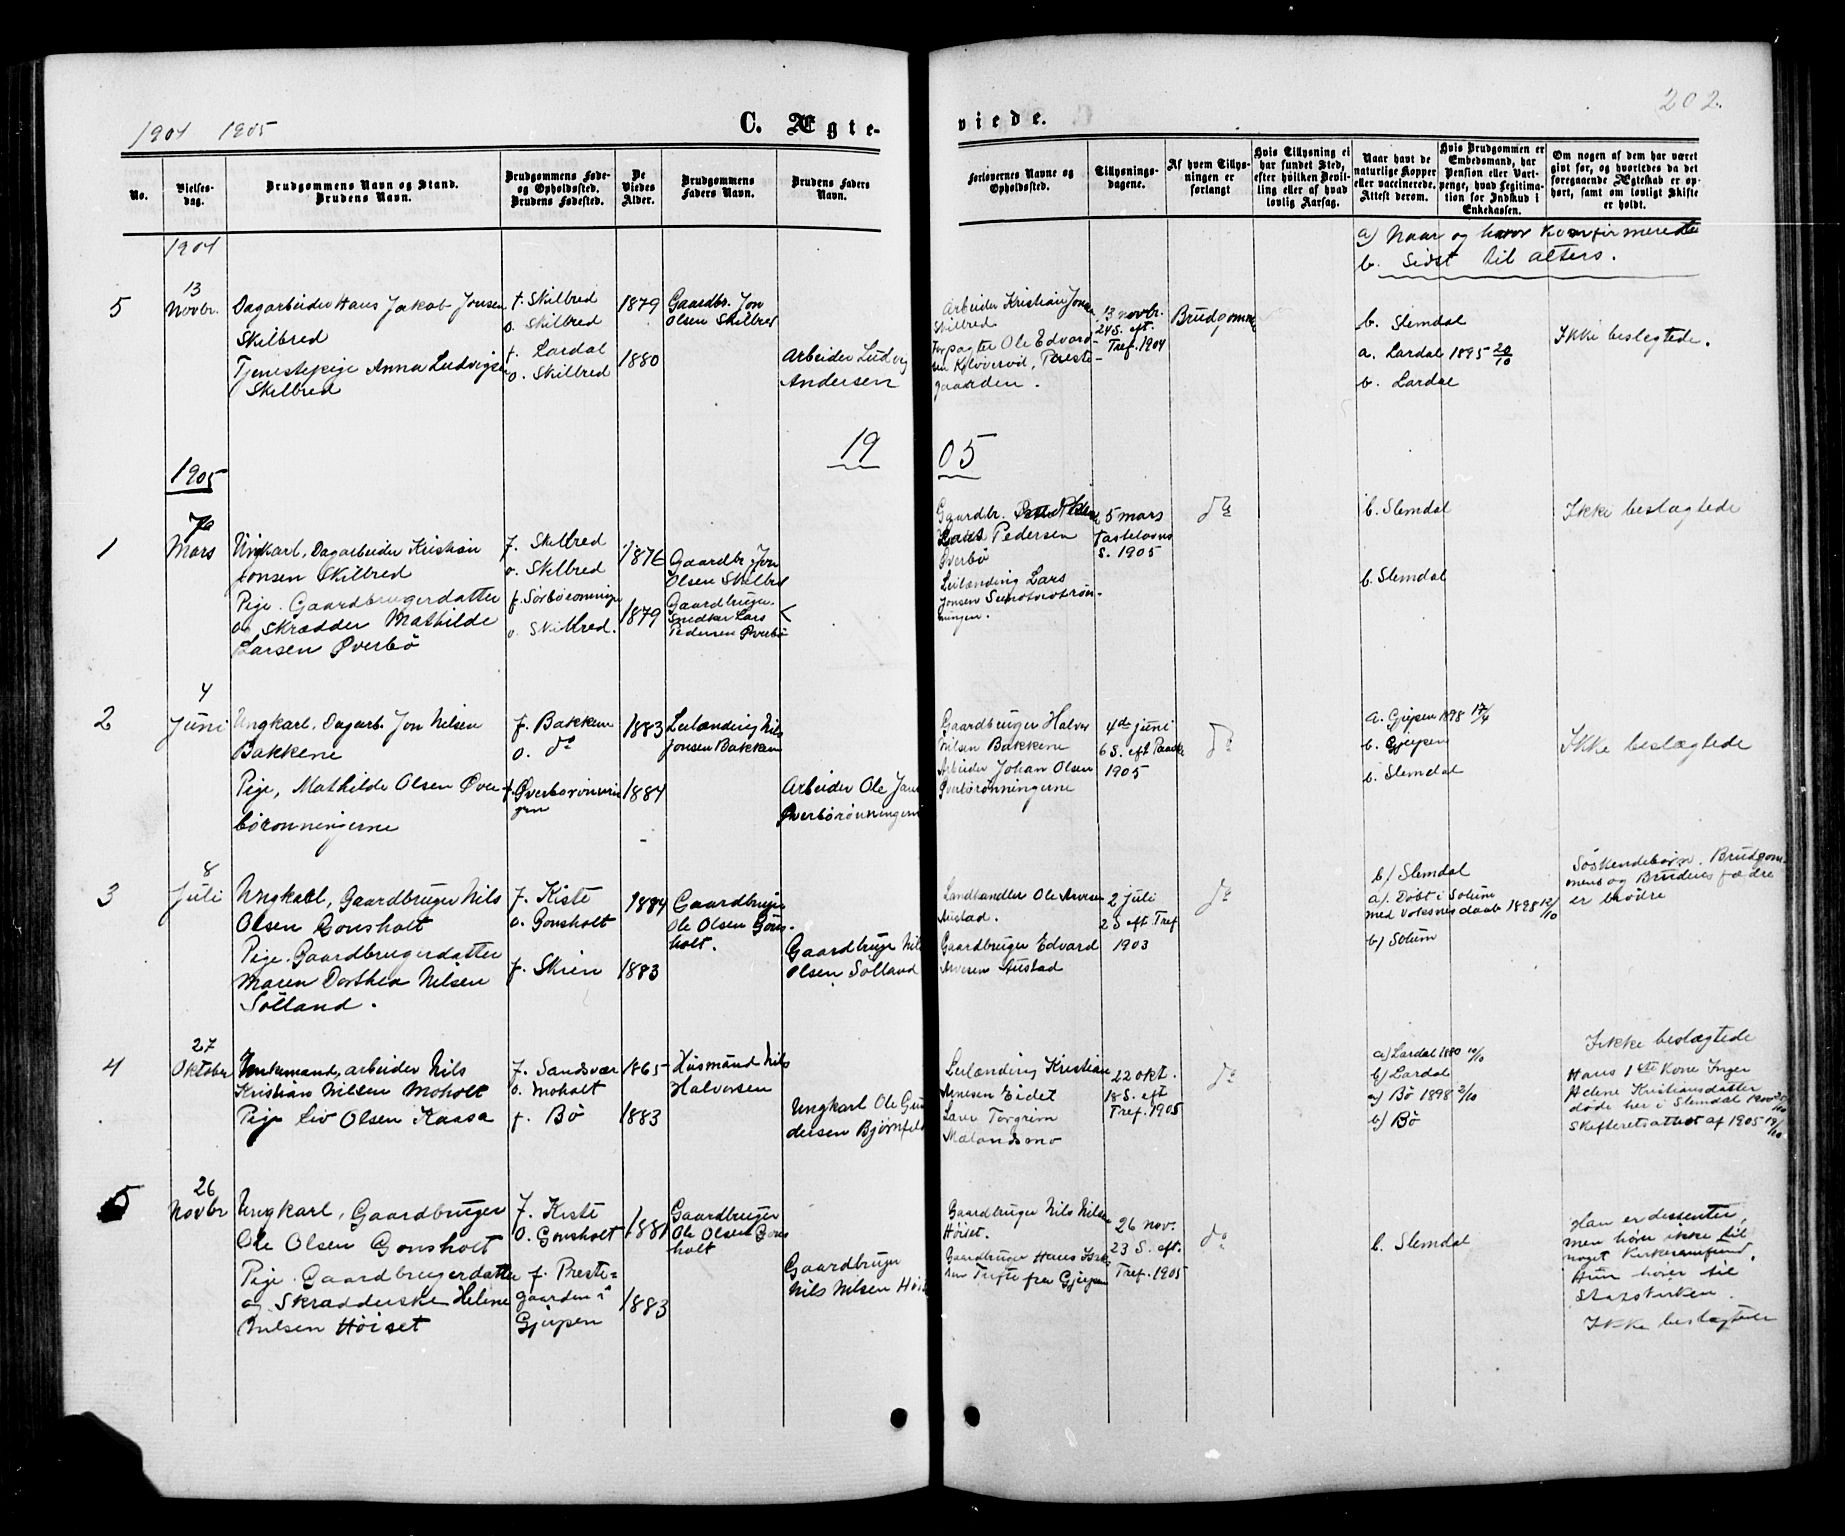 202.
1904 1905
C. Ægte-
viede.
No.
Vielses-
dag.
Brudgommens Navn og Stand.
Brudens Navn.
Brudgommens Føde-
og Opholdssted.
Brudens Fødested.
De
Viedes
Alder.
Brudgommens
Faders Navn.
Brudens Faders
Navn.
Forlovernes Navne og
Opholdssted.
Tillysnings-
dagene.
Af hvem Tillys-
ningen er
forlangt
Hvis Tillysning ei
har fundet Sted,
efter hvilken Bevil-
ling eller af hvad
lovlig Aarsag.
Naar havt de
naturlige Kopper
eller vaccinerede.
Attest derom.
Hvis Brudgommen er
Embedsmand, har
Pension eller Vart-
penge, hvad Legitima-
tion for Indskud i
Enkekassen.
Om nogen af dem har været
gift før, og hvorledes da det
foregaaende Ægteskab er op-
hørt, samt om lovligt Skifte
er holdt.
1904
a) Naar og hvor konfirmerede
b. Sidst til alters.
5
13
Novbr.
Dagarbeider Hans Jakob Jonsen
Skilbred
Tjenestepige Anna Ludvigsen
Skilbred
f. Skilbred
o. Skilbred
f. Lardal
o. Skilbred
1879
1880
Gaardbr. Jon
Olsen Skilbred
Arbeider Ludvig
Andersen
Arbeider Kristian Jonsen
Skilbred
Forpagter Ole Edvard-
sen Kløverød, Preste-
gaarden.
13 novbr.
24 S. eft.
Tref. 1904
Brudgommen
b. Slemdal
a. Lardal 1895 20/10
b. Lardal
Ikke beslegtede.
19
05
1905
1
Mars
Ungkarl, Dagarbeider Kristian
Jonsen Skilbred
Pige. Gaardbrugerdatter
og Skrædder Mathilde
Larsen Øverbø
f. Skilbred
o. Skilbred
f. Sørbørønninge
o. Skilbred.
1876
1879
Gaardbr. Jon
Olsen Skilbred
Gaardbruger,
Snedker Lars
Pedersen Øverbø
Gaardbr.
Pedersen
Øverbø
Leilænding Lars
Jonsen
ningen.
5 mars
Fastelavns
S. 1905
do
b. Slemdal
b. Slemdal
Ikke beslægtede
2
4
Juni
Ungkarl, Dagarb. Jon Nilsen
Bakkene
Pige, Mathilde Olsen Øver-
børønningerne
f. Bakken
o. do
f. Øverbørønnin
gen
1883
1884
Leilænding Nils
Jonsen Bakken
Arbeider Ole Jans
Øverbørønningern
Gaardbruger Halvor
Nilsen Bakkene
Arbeider Johan Olsen
Øverbørønningerne
4de juni
6 S. eft Paaske
1905
do
a. Gjerpen 1898 17/4
b. Gjerpen
b. Slemdal
Ikke beslægtede
3
8
Juli
Ungkarl, Gaardbruger Nils
Olsen Gonsholt
Pige. Gaardbrugerdatter
Maren Dorthea Nilsen
Sølland.
f. Kiste
o. Gonsholt
f. Skien
1884
1883
Gaardbruger
Ole Olsen Gons-
holt.
Gaardbruger Nils
Olsen Sølland
Landhandler Ole Arvesen
Austad.
Gaardbruger Edvard
Arvesen Austad
2 juli
2 S eft Tref
1903
do
b) Slemdal
a) Døbt i Solum
med voksnesdaab 1898 12/10
b) Solum
Søskendebørn. Brudgom-
mens og Brudens fædre
er brødre
4
27
Oktober
Enkemand, arbeider Nils
Kristian Nilsen Moholt
Pige Liv Olsen Kaasa
f. Sandsvær
o. Moholt
f. Bø
1865
1883
Husmand Nils
Halvorsen
Ungkarl Ole Gun
dersen Bjørnfeld
Leilænding Kristian
Arnesen Eidet
Lærer Torgrim
Mælandsmo
22 okt.
18 S. eft
Tref. 1905
do
a) Lardal 1880 10/10
b) Lardal
a) Bø 1898 2/10
b) Bø
Ikke beslægtede
Hans 1ste Kone Inger
Helene Kristiansdatter
døde her i Slemdal
Skifteretsattest af 1905 19/10
5
26
Novbr
Ungkarl, Gaardbruger
Ole Olsen Gonsholt
Pige. Gaardbrugerdatter
og Skrædderske Helene
Nilsen Høiset
f. Kiste
o. Gonsholt
f. Preste-
gaarden i
Gjerpen
1881
1883
Gaardbruger
Ole Olsen Gons
holt
Gaardbruger
Nils Nilsen Høis
Gaardbruger Nils Nilsen
Høiset.
Gaardbruger Hans
Tufte fra Gjerpen
26 nov.
23 S. eft.
Tref. 1905
do
b. Slemdal
Han er dissenter,
men hører ikke til
noget Kirkesamfund.
Hun hører til
Statskirken.
Ikke beslægtede